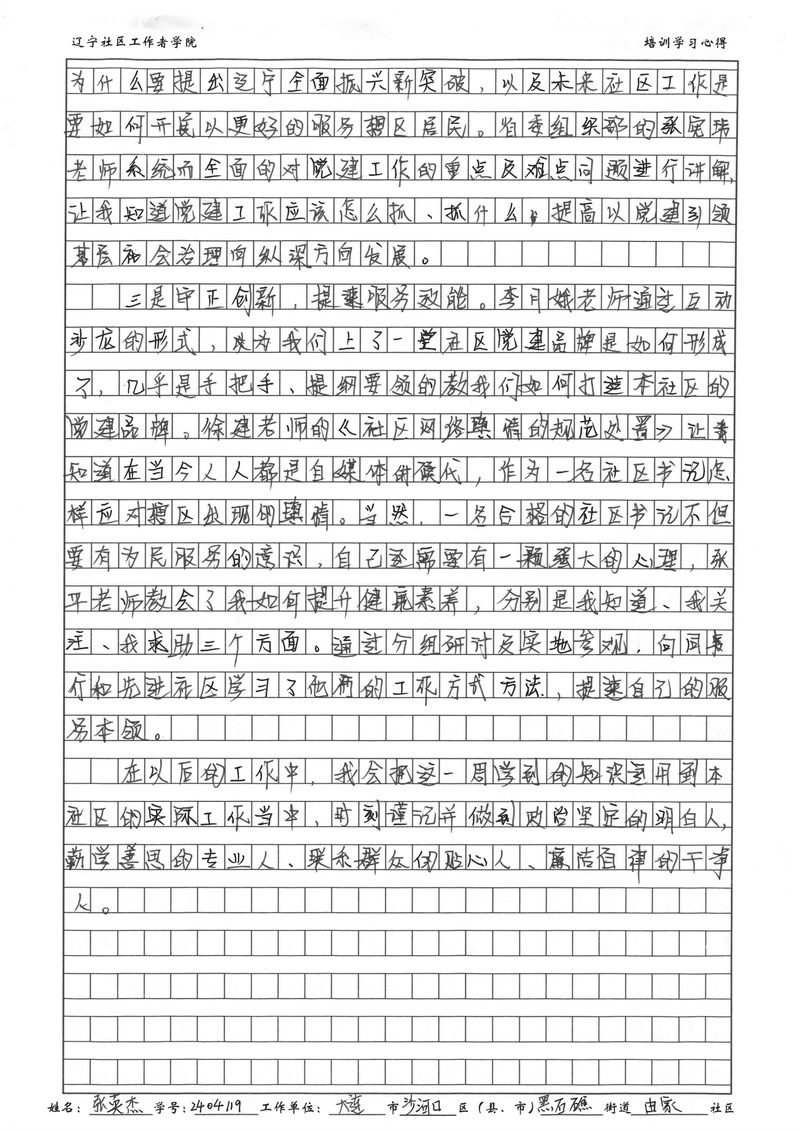 辽宁社区工作者学院 培训学习心得
为什么要提出辽宁全面振兴新突破，以及未来社区工作是
要如何开展以更好的服务辖区居民。省委组织部的张宪玮
老师系统而全面的对党建工作的重点及难点问题进行讲解，
让我知道党建工作应该怎么抓、抓什么，提高以党建引领
基层社会治理向纵深方向发展。
三是守正创新，提速服务效能。李月娥老师通过互动
沙龙的形式，以为我们上了一堂社区党建品牌是如何形成
了，几乎是手把手、提纲要领的教我们如何打造本社区的
党建品牌。徐建老师的《社区网络舆情的规范处置》让我
知道在当今人人都是自媒体时候代，作为一名社区书记怎
样应对辖区出现的舆情。当然，一名合格的社区书记不但
要有为民服务的意识，自己还需要有一颗强大的心理，张
平老师教会了我如何提升健康素养，分别是我知道、我关
注、我求助三个方面。通过分组研讨及实地参观，向同
行和先进社区学习了他们的工作方式方法，提速自己的服
务本领。
在以后的工作中，我会把这一周学到的知识运用到本
社区的实际工作当中，时刻谨记并做到政治坚定的明白人，
勤学善思的专业人、联系群众的贴心人、廉洁自律的干净
人。
姓名：张英杰 学号：2404119 工作单位：大连 市 沙河口 区（县、市）黑石礁 街道 由家 社区